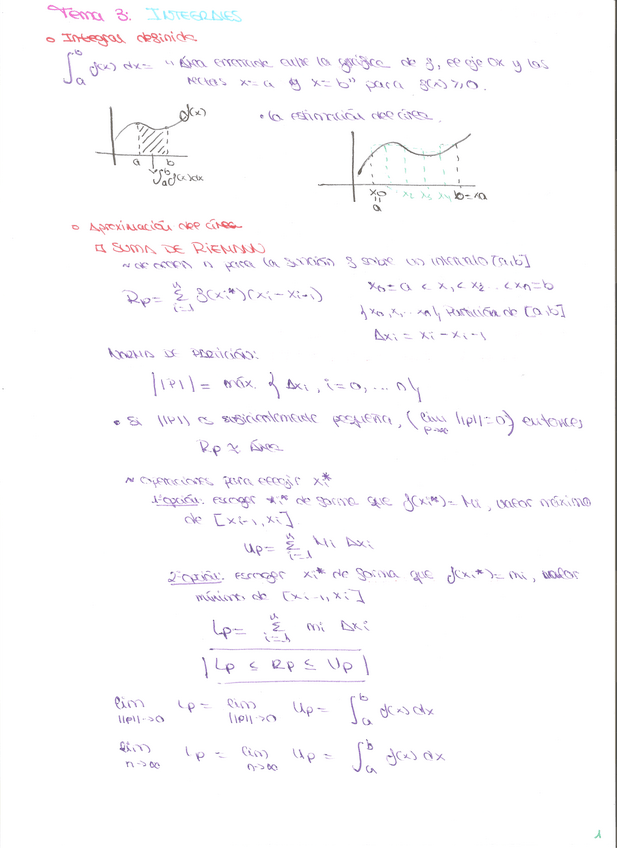 Tema 3: INTEGRALES
Integral definida
∫_a^b f(x) dx = "Área encerrada entre la gráfica de f, el eje Ox y las
rectas x=a y x=b" para f(x) ≥ 0.
f(x)
a b
∫_a^b f(x) dx
• La estimación del área.
x0 x2 x3 x4 b=
a
Aproximación del área
SUMA DE RIEMANN
~ de orden n para la función f sobre un intervalo [a,b]
Rp = Σ_{i=1}^n f(xi*)(xi - xi-1)
x0 = a < x1 < x2 ... < xn = b
{x0, x1, ... xn} Partición de [a,b]
Δxi = xi - xi-1
NORMA DE PARTICIÓN:
||P|| = máx. { Δxi, i=0, ... n }
• Si ||P|| es suficientemente pequeña, (lim ||P||=0) entonces
Rp ≈ Área
~ Operaciones para escoger xi*
1ª opción: escoger xi* de forma que f(xi*) = Mi, valor máximo
de [xi-1, xi]
Up = Σ_{i=1}^n Mi Δxi
2ª opción: escoger xi* de forma que f(xi*) = mi, valor
mínimo de [xi-1, xi]
Lp = Σ_{i=1}^n mi Δxi
| Lp ≤ Rp ≤ Up |
lim_{||P||→0} Lp = lim_{||P||→0} Up = ∫_a^b f(x) dx
lim_{n→∞} Lp = lim_{n→∞} Up = ∫_a^b f(x) dx
1